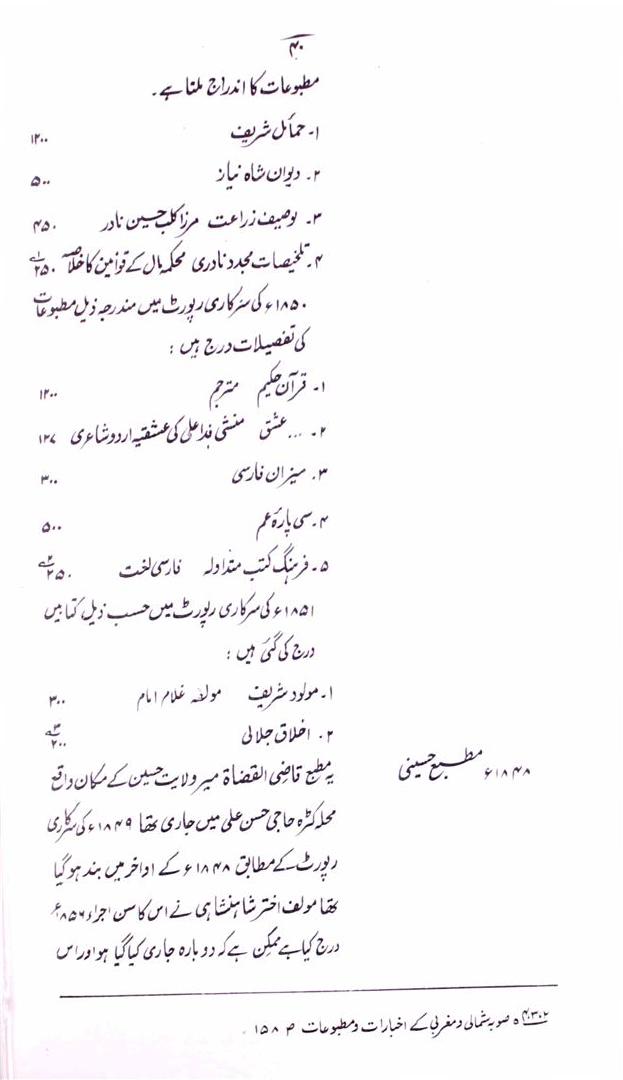 ۴۰
مطبوعات کا اندراج ملتا ہے۔
۱۔ حمائل شریف ۱۲۰۰
۲۔ دیوان شاہ نیاز ۵۰۰
۳۔ توصیف زراعت مرزا کلب حسین نادر ۴۵۰
۴۔ تلخیصات مجدد نادری محکمہ مال کے قوانین کا خلاصہ ۲۵۰ ۱؎
۱۸۵۰ء کی سرکاری رپورٹ میں مندرجہ ذیل مطبوعات
کی تفصیلات درج ہیں :
۱۔ قرآن حکیم مترجم ۱۲۰۰
۲۔ ... عشق منشی فدا علی کی عشقیہ اردو شاعری ۱۲۷
۳۔ میزان فارسی ۳۰۰
۴۔ سی پارۂ عم ۵۰۰
۵۔ فرہنگ کتب متداولہ فارسی لغت ۲۵۰ ۲؎
۱۸۵۱ء کی سرکاری رپورٹ میں حسب ذیل کتابیں
درج کی گئی ہیں :
۱۔ مولود شریف مولفہ غلام امام ۳۰۰
۲۔ اخلاق جلالی ۲۰۰ ۳؎
۱۸۴۸ء مطبع حسینی
یہ مطبع قاضی القضاة میر ولایت حسین کے مکان واقع
محلہ کٹرہ حاجی حسن علی میں جاری تھا ۱۸۴۹ء کی سرکاری
رپورٹ کے مطابق ۱۸۴۸ء کے اواخر میں بند ہو گیا
تھا مولف اختر شاہنشاہی نے اس کا سن اجراء ۱۸۵۶ء
درج کیا ہے ممکن ہے کہ دوبارہ جاری کیا گیا ہو اور اس
صوبہ شمالی و مغربی کے اخبارات و مطبوعات ص ۱۵۸